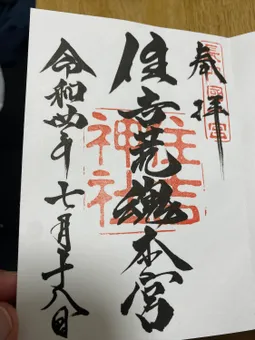 奉拝
住吉荒魂本宮
住吉
神社
令和四年七月十八日